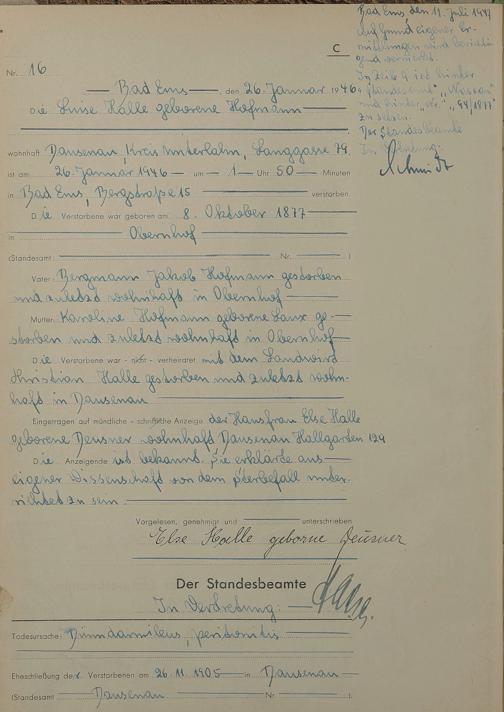 Bad Ems den 11. Juli 1947
Auf Grund eigener Er-
mittlungen wird berichti-
gend vermerkt:
In Zeile 9 ist hinter
„Standesamt“ „Nassau“
und hinter „Nr.“ „94/1877“
zu setzen.
Der Standesbeamte
In Vertretung:
Schmidt
C
Nr. 16
Bad Ems, den 26. Januar 1946
Die Luise Halle geborene Hofmann
wohnhaft Dausenau, Kreis Unterlahn, Langgasse 79
ist am 26. Januar 1946 um 1 Uhr 50 Minuten
in Bad Ems, Bergstraße 15 verstorben.
Die Verstorbene war geboren am 8. Oktober 1877
in Obernhof
(Standesamt Nr. )
Vater: Bergmann Jakob Hofmann gestorben
und zuletzt wohnhaft in Obernhof
Mutter: Karoline Hofmann geborene Laux ge-
storben und zuletzt wohnhaft in Obernhof
Die Verstorbene war - nicht - verheiratet mit dem Landwird
Christian Halle gestorben und zuletzt wohn-
haft in Dausenau
Eingetragen auf mündliche - schriftliche Anzeige der Hausfrau Else Halle
geborene Deusner wohnhaft Dausenau Hallgarten 129
Die Anzeigende ist bekannt. Sie erklärte aus
eigener Wissenschaft von dem Sterbefall unter-
richtet zu sein.
Vorgelesen, genehmigt und unterschrieben
Else Halle geborne Deusner
Der Standesbeamte
In Vertretung:
Todesursache: Dünndarmileus, peritonitis
Eheschließung der Verstorbenen am 26.11.1905 in Dausenau
(Standesamt Dausenau Nr. ).